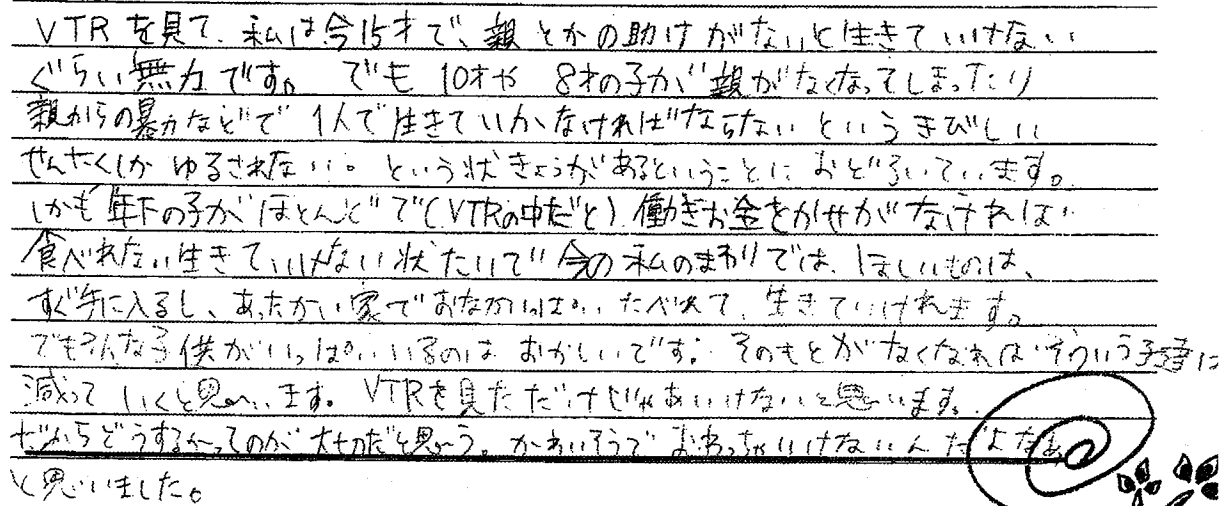 VTRを見て、私は今15才で、親とかの助けがないと生きていけない
ぐらい無力です。でも10才や8才の子が親がなくなってしまったり
親からの暴力などで1人で生きていかなければならないというきびしい
せんたくしかゆるされない。という状きょうがあるということにおどろいています。
しかも年下の子がほとんどで(VTRの中だと)働きお金をかせがなければ
食べれない生きていけない状たいで今の私のまわりでは、ほしいものは、
すぐ手に入るし、あったかい家でおなかいっぱいたべれて、生きていけれます。
でもそんな子供がいっぱいいるのはおかしいです。そのもとがなくなればそういう子達は
減っていくと思います。VTRを見ただけじゃあいけないと思います。
だからどうするかってのが大切だと思う。かわいそうでおわっちゃいけないんだよなぁ
と思いました。